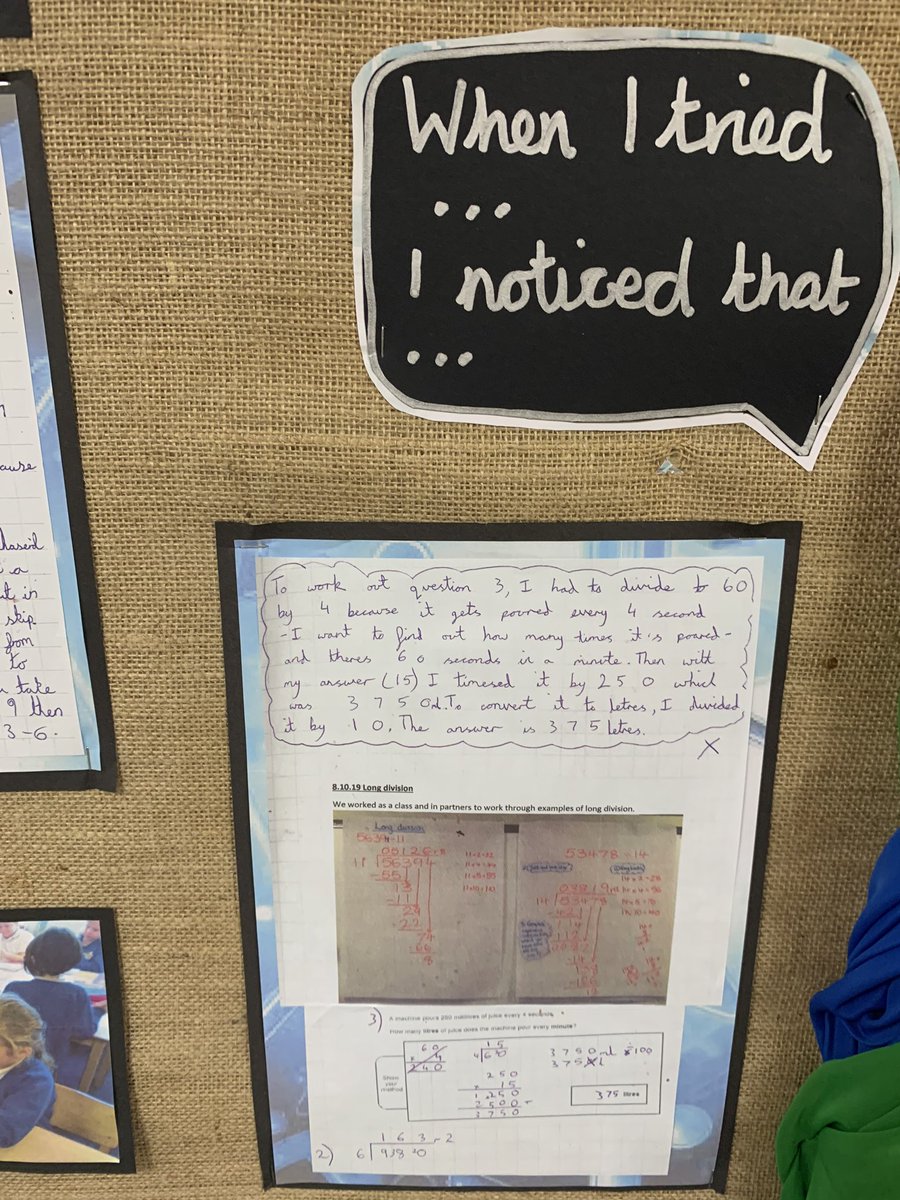 When I tried
...
I noticed that
...
ause
hased
a
t in
skip
from
to
take
9 then
3-6.
To work out question 3, I had to divide 60
by 4 because it gets poured every 4 second
-I want to find out how many times it's poured-
and theres 60 seconds in a minute. Then with
my answer (15) I timesed it by 250 which
was 3750ml. To convert it to letres, I divided
it by 10. The answer is 375 letres.
8.10.19 Long division
We worked as a class and in partners to work through examples of long division.
Long division
56394÷11
05126r8
11 56394
-551
13
-11
29
-22
74
-66
8
53478÷14
03819
14 53478
3) A machine pours 250 millilitres of juice every 4 seconds.
How many litres of juice does the machine pour every minute?
Show your method
60
x 4
240
15
4 60
250
x 15
1250
2500
3750
3750ml ÷100
375 l
375 litres
163r2
2) 6 93820